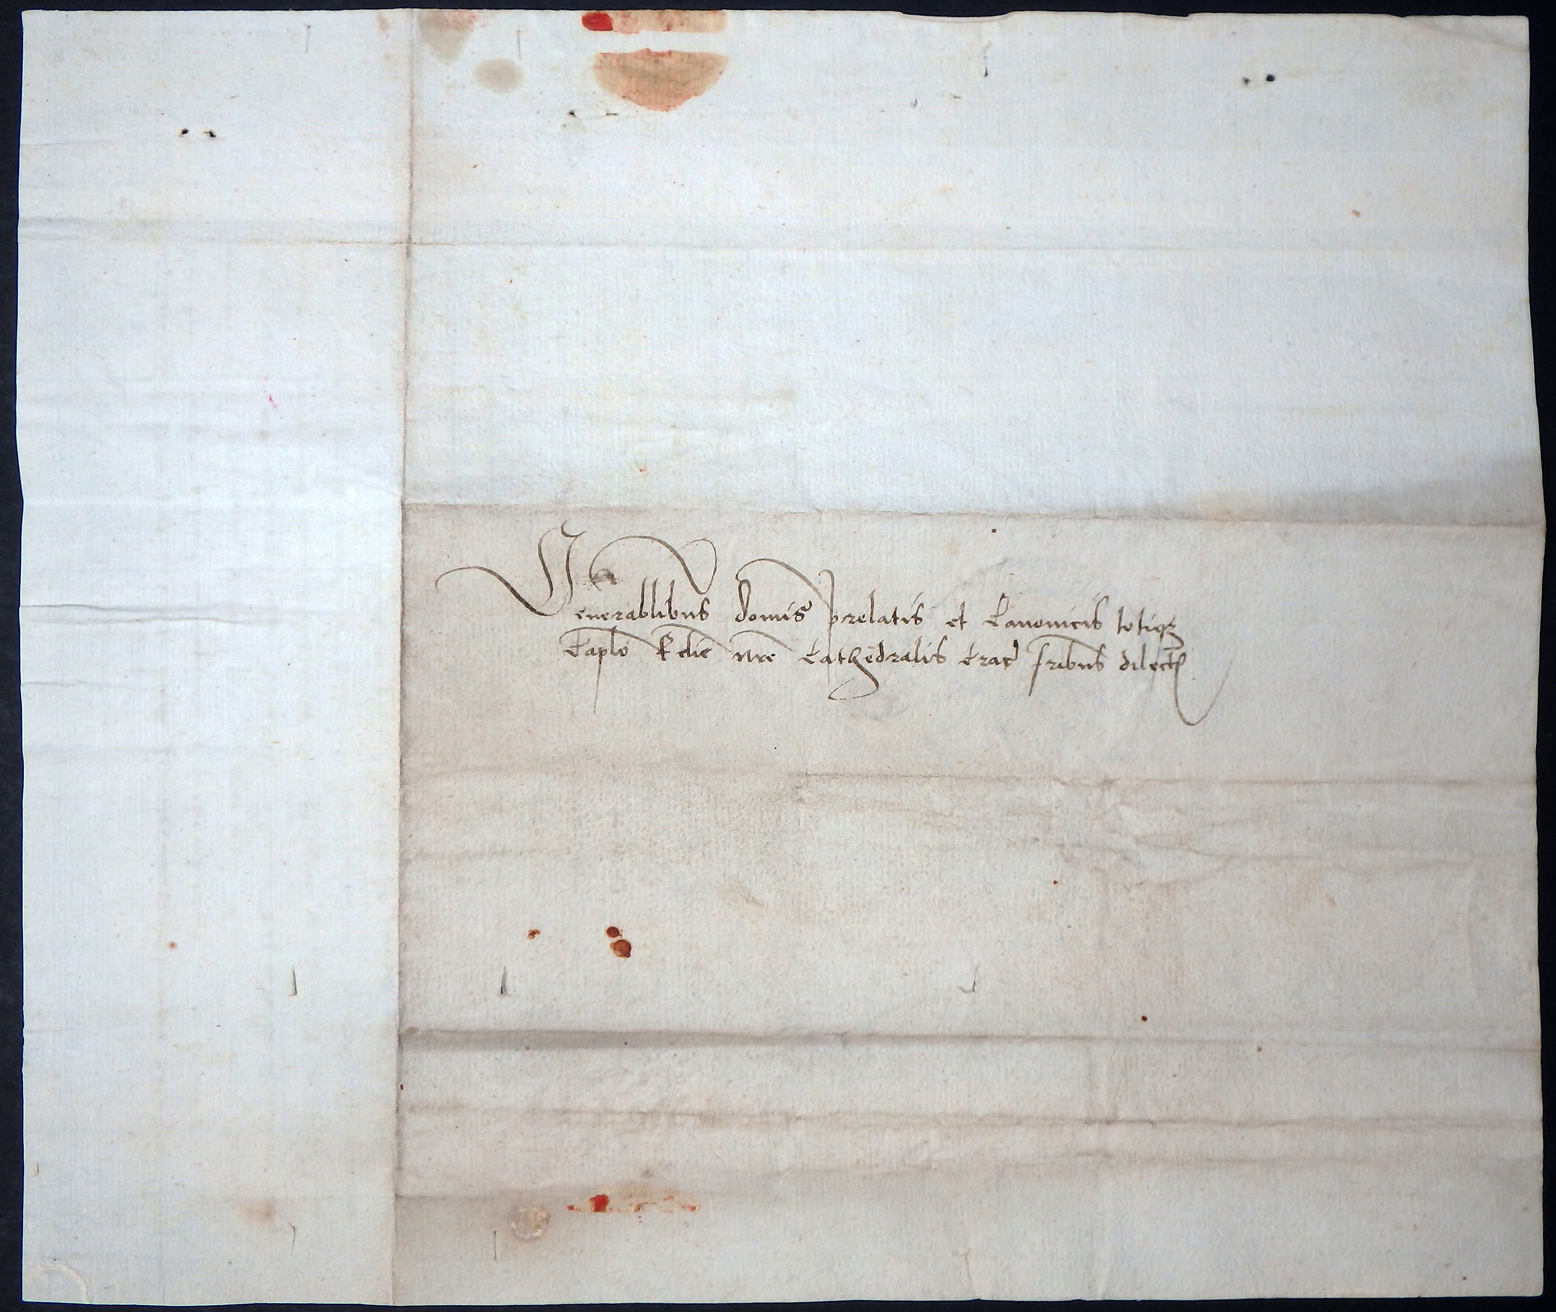 Venerabilibus domis prelatis et Canonicis totiqꝫ
Caplo Eclie nre Cathedralis Crac fribus dilectꝭ